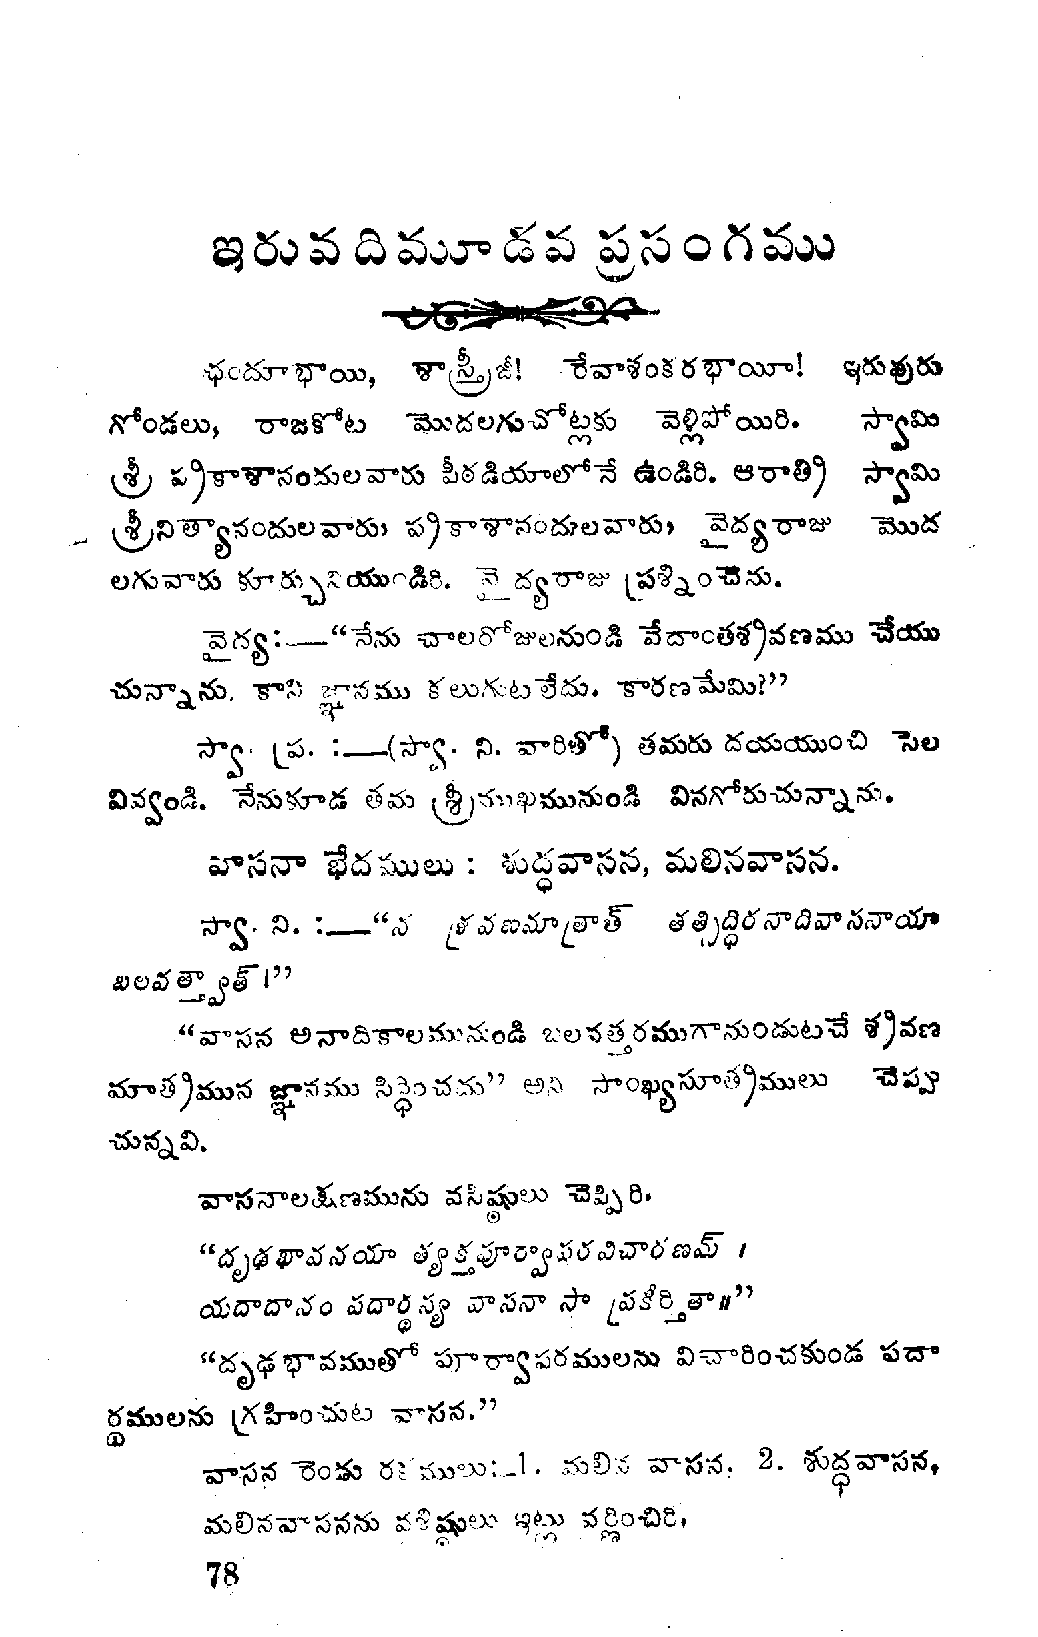 ఇరువదిమూడవ ప్రసంగము
ఛందూభాయి, శాస్త్రీజీ! రేవాశంకరభాయీ! ఇరువురు
గోండలు, రాజకోట మొదలగుచోట్లకు వెళ్లిపోయిరి. స్వామి
శ్రీ ప్రకాశానందులవారు పీఠడియాలోనే ఉండిరి. ఆరాత్రి స్వామి
శ్రీనిత్యానందులవారు, ప్రకాశానందులవారు, వైద్యరాజు మొద
లగువారు కూర్చునియుండిరి. వైద్యరాజు ప్రశ్నించెను.
వైద్య:—“నేను చాలరోజులనుండి వేదాంతశ్రవణము చేయు
చున్నాను. కాని జ్ఞానము కలుగుటలేదు. కారణమేమి?”
స్వా. ప్ర. :—(స్వా. ని. వారితో) తమరు దయయుంచి సెల
వివ్వండి. నేనుకూడ తమ శ్రీముఖమునుండి వినగోరుచున్నాను.
వాసనా భేదములు : శుద్ధవాసన, మలినవాసన.
స్వా. ని. :—“న శ్రవణమాత్రాత్ తత్సిద్ధిరనాదివాసనాయా
బలవత్త్వాత్।”
“వాసన అనాదికాలమునుండి బలవత్తరముగానుండుటచే శ్రవణ
మాత్రమున జ్ఞానము సిద్ధించదు” అని సాంఖ్యసూత్రములు చెప్పు
చున్నవి.
వాసనాలక్షణమును వసిష్ఠులు చెప్పిరి.
“దృఢభావనయా త్యక్తపూర్వాపరవిచారణమ్ ।
యదాదానం పదార్థస్య వాసనా సా ప్రకీర్తితా॥”
“దృఢభావముతో పూర్వాపరములను విచారించకుండ పదా
ర్థములను గ్రహించుట వాసన.”
వాసన రెండు రకములు:-1. మలిన వాసన. 2. శుద్ధవాసన,
మలినవాసనను వశిష్ఠులు ఇట్లు వర్ణించిరి,
78